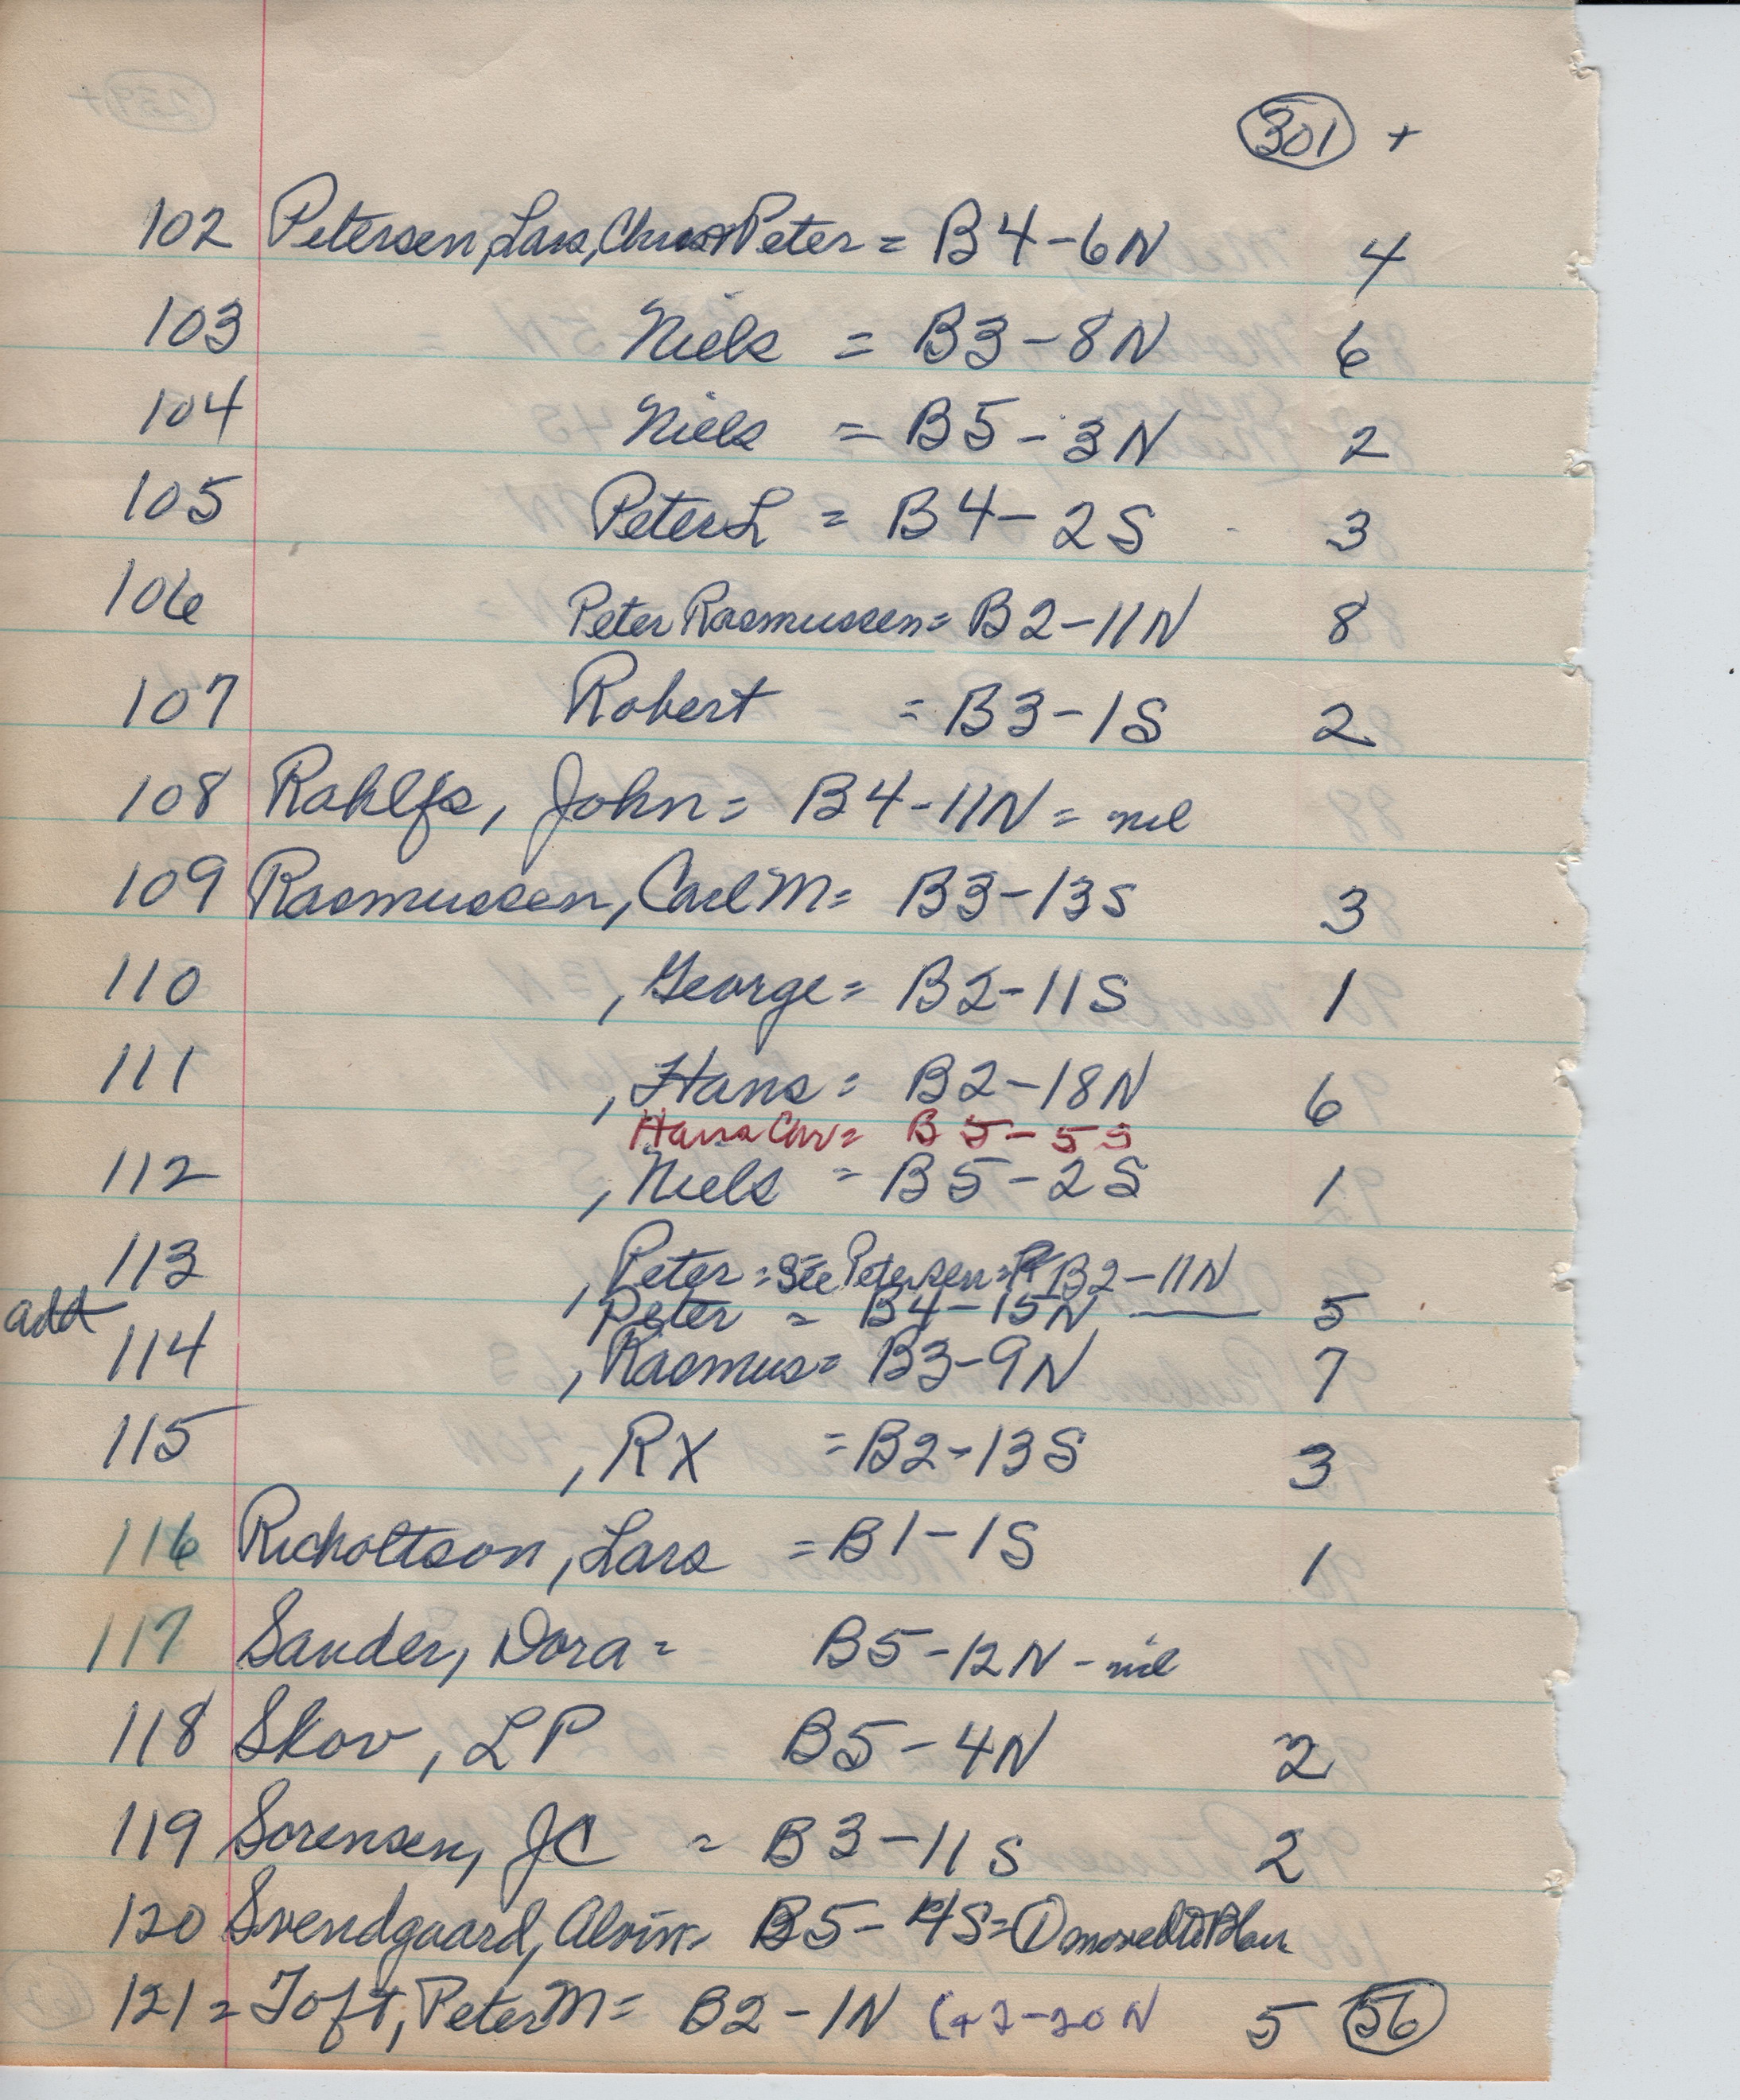 301 +
102 Petersen, Lars, Chris Peter = B4-6N 4
103 Niels = B3-8N 6
104 Niels = B5-3N 2
105 Peter L = B4-2S 3
106 Peter Rasmussen = B2-11N 8
107 Robert = B3-1S 2
108 Rahlfs, John = B4-11N = nil
109 Rasmussen, Carl M = B3-13S 3
110 , George = B2-11S 1
111 , Hans = B2-18N 6
Hans Chr = B5-5S
112 , Niels = B5-2S 1
113 , Peter = See Petersen = B2-11N
add Peter = B4-15N — 5
114 , Rasmus = B3-9N 7
115 , RX = B2-13S 3
116 Richoltson, Lars = B1-1S 1
117 Sander, Dora = B5-12N - nil
118 Skov, LP B5-4N 2
119 Sorensen, JC = B3-11S 2
120 Svendgaard, Alvin = B5-4S = 1 moved to Blair
121 = Toft, Peter M = B2-1N (+2-20N 5 56